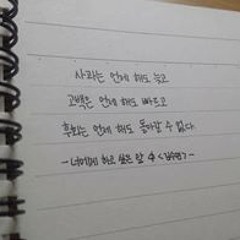 사과는 언제 해도 늦고
고백은 언제 해도 빠르고
후회는 언제 해도 돌아갈 수 없다.
- 너에게 하고 싶은 말 中 <김수민> -